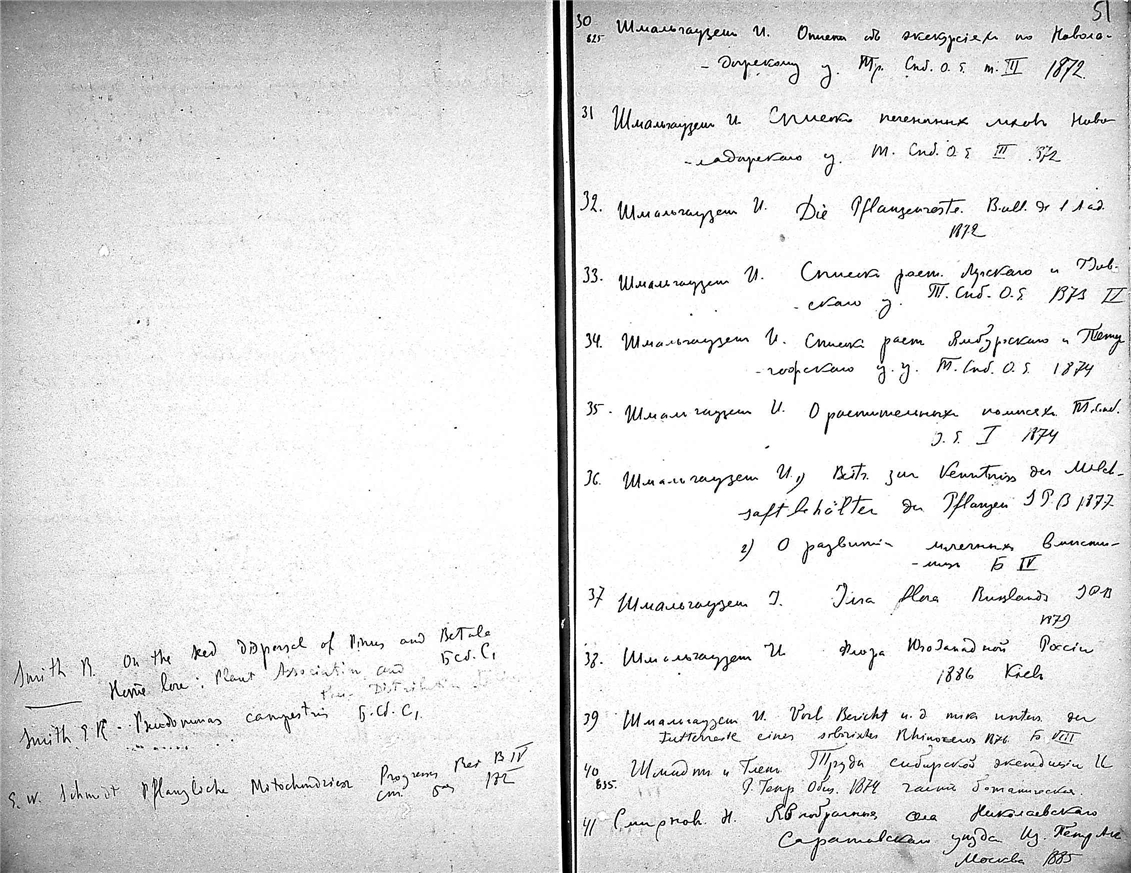 Smith R. On the seed dispersal of Pinus and Betula
Home love: Plant Association and
Distribution
Smith E.R. - Pseudomonas campestris
E. W. Schmidt Pflanzliche Mitochondrien Progressus Rei B IV
172
51
30 Шмальгаузен И. Отчет об экскурсіях по Новола-
825
- дожскому у. Тр. Спб. О. Е. т. III 1872.
31 Шмальгаузен И. Списокъ печеночных мхов Ново-
-ладожскаго у. Т. Спб. О. Е. III 872
32. Шмальгаузен И. Die Pflanzenreste. Bull. de l'Acad.
1872
33. Шмальгаузен И. Список раст. Лужскаго и Гдов-
- скаго у. Т. Спб. О. Е. 1873 II
34. Шмальгаузен И. Список раст Ямбургскаго и Петер
- гофскаго у. у. Т. Спб. О. Е. 1874
35. Шмальгаузен И. О растительных помесях. Т. Спб.
О. Е. I 1874
36. Шмальгаузен И. 1) Beitr. zur Kenntniss der Milch-
saftbehälter der Pflanzen S P. B 1877
2) О развитіи млечных вмести-
- лищ Б IV
37 Шмальгаузен I. Jura flora Russlands S P B
1879
38. Шмальгаузен И Флора Югозападной Россіи
1886 Кіевъ
39 Шмальгаузен И. Vorl Bericht u. d mik unters. der
Futterreste eines sibirischen Rhinoceros 1876 Б VIII
40 Шмидт и Глен Труды сибирской экспедиціи И
835.
Р. Геогр Общ. 1874 часть ботаническая.
41 Смирнов. Н. Явнобрачныя села Николаевскаго
Саратовскаго уезда Из. Петр Ак
Москва 1885